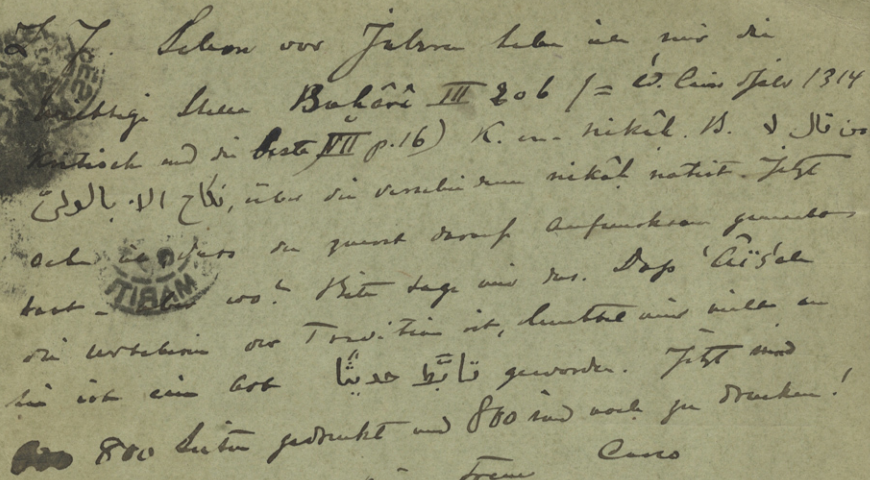 L. J. Schon vor Jahren habe ich mir die
wichtige Stelle Buhârî III 206 (= ed. Cairo 1314
kritisch und die beste VII p. 16) K. en-nikâh. B. من قال لا
نكاح الا بالولىّ, über die verschiedenen nikâh notirt. Jetzt
sehe ich, dass du zuerst darauf aufmerksam gemacht
hast – wo? Bitte sage mir das. Dass ʿÂïša
die der Tradition ist, mir
sie ist ein تأبّط حديثًا geworden. Jetzt sind
800 Seiten gedruckt und 800 sind noch zu drucken!
MARIT